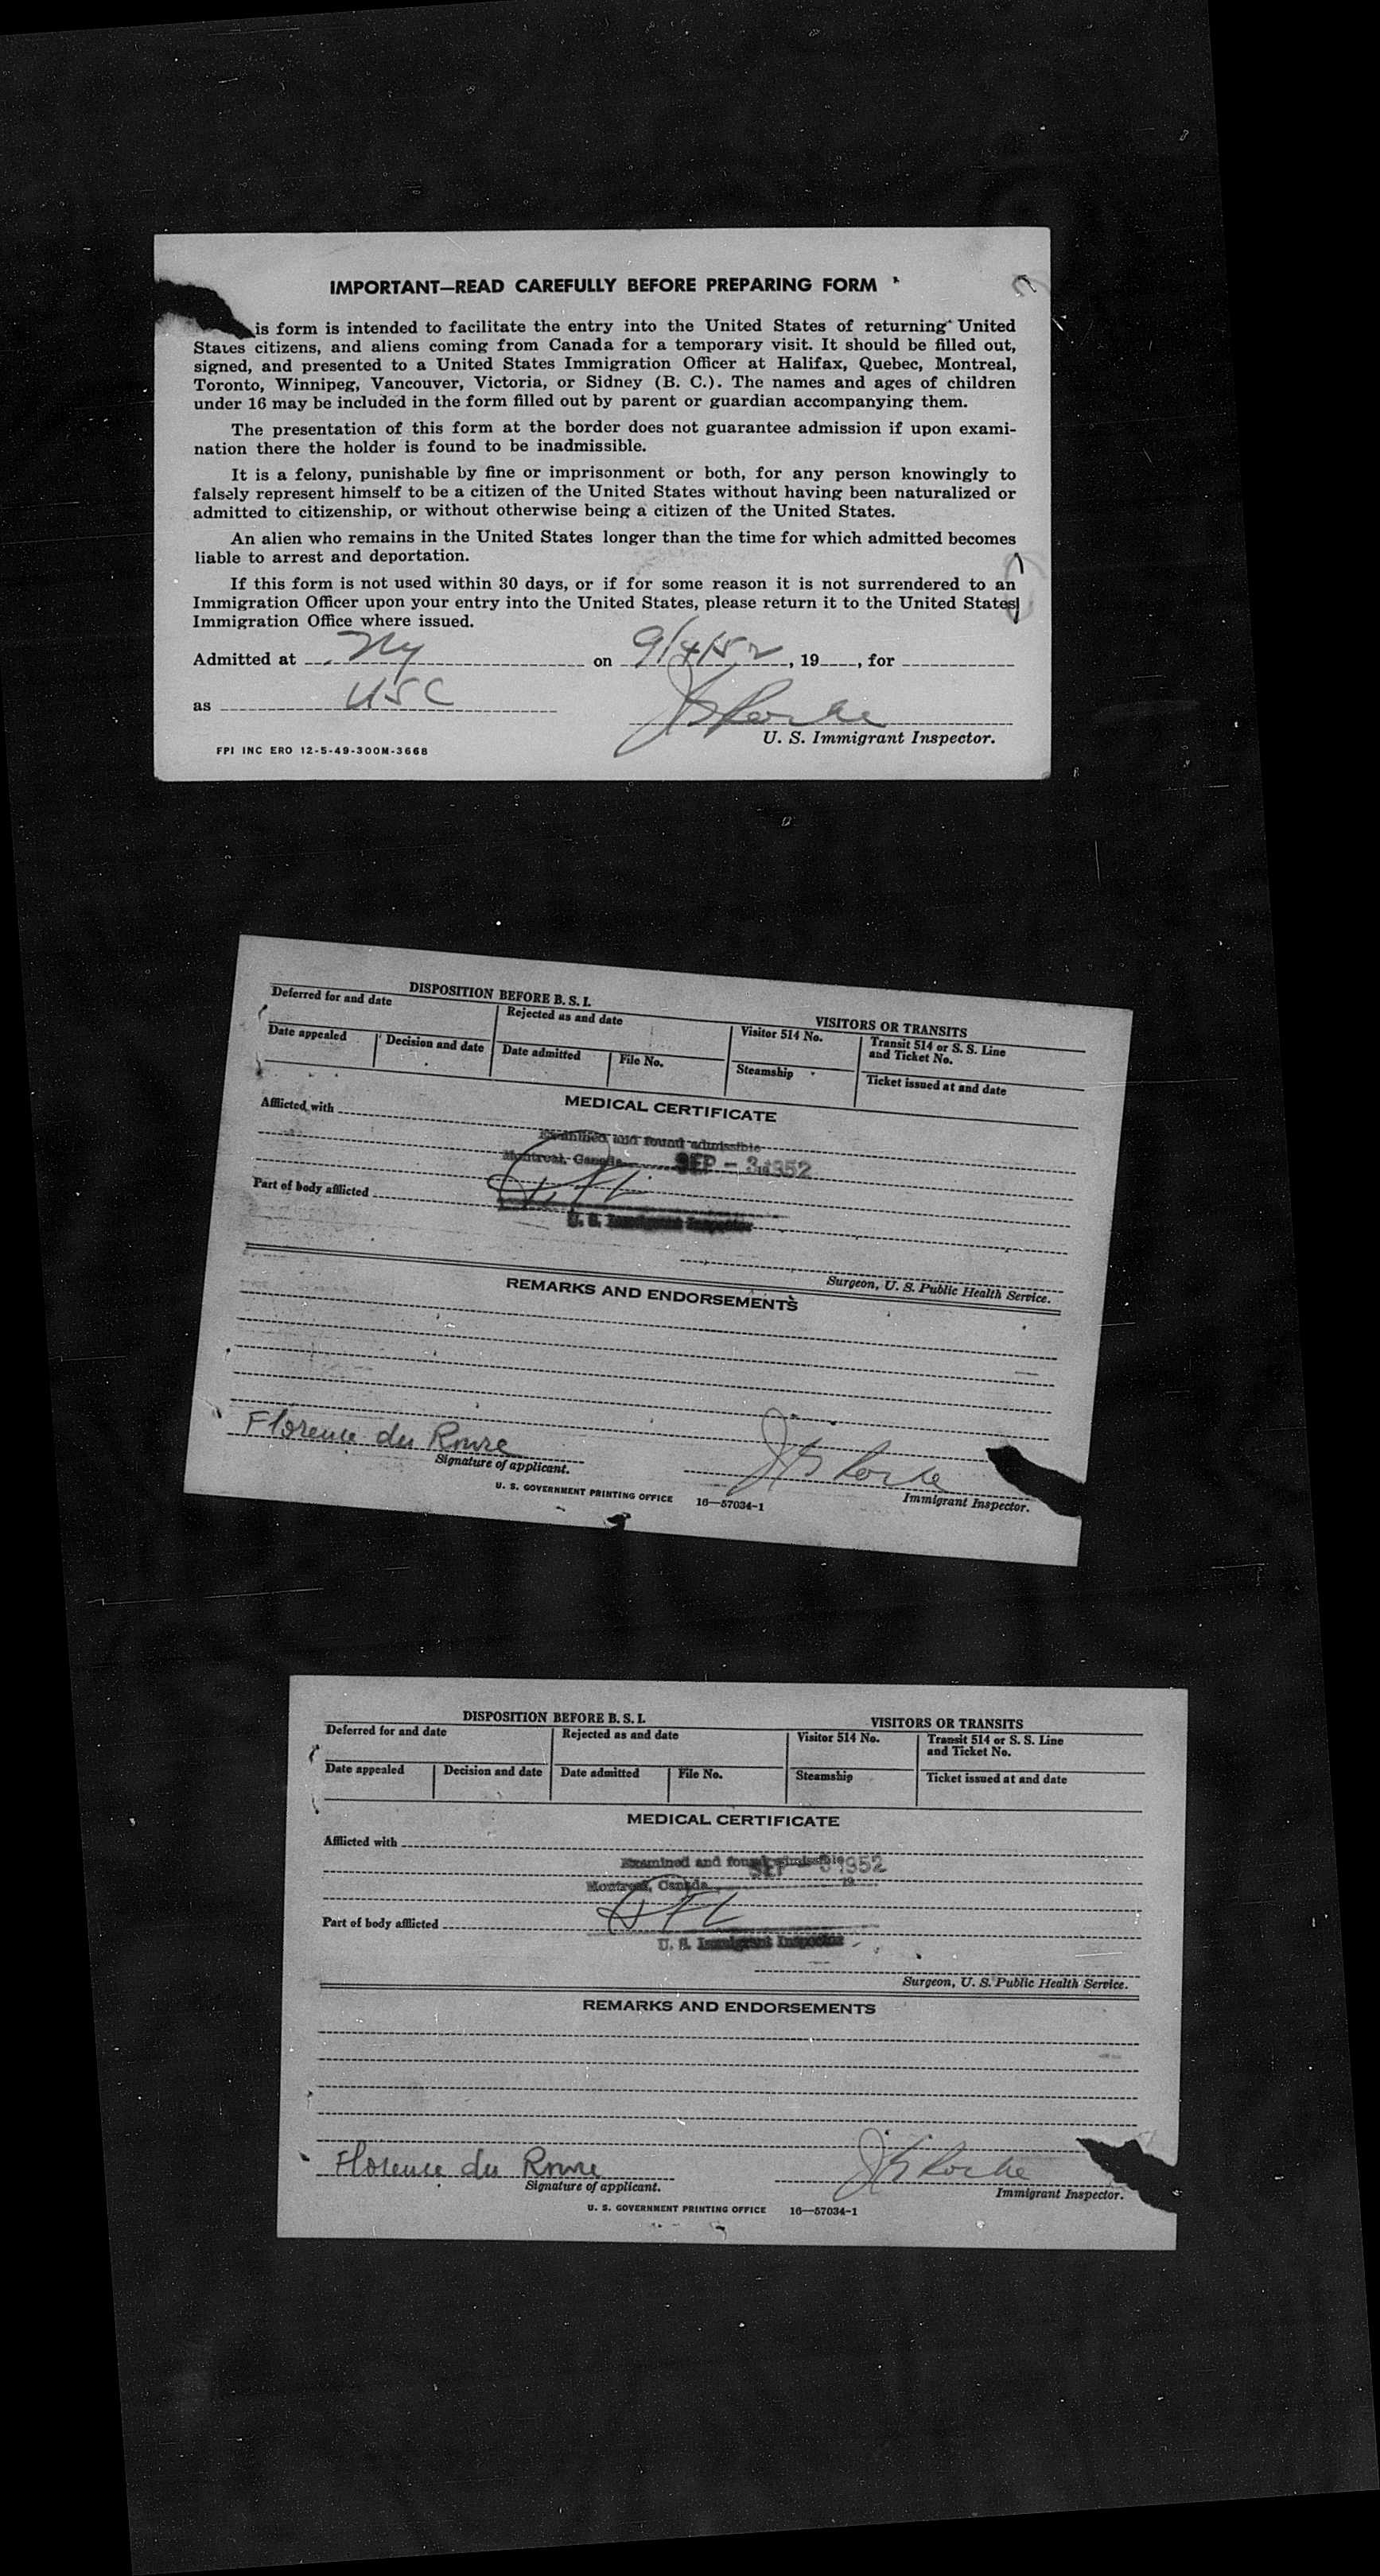 IMPORTANT—READ CAREFULLY BEFORE PREPARING FORM
is form is intended to facilitate the entry into the United States of returning United
States citizens, and aliens coming from Canada for a temporary visit. It should be filled out,
signed, and presented to a United States Immigration Officer at Halifax, Quebec, Montreal,
Toronto, Winnipeg, Vancouver, Victoria, or Sidney (B. C.). The names and ages of children
under 16 may be included in the form filled out by parent or guardian accompanying them.
The presentation of this form at the border does not guarantee admission if upon exami-
nation there the holder is found to be inadmissible.
It is a felony, punishable by fine or imprisonment or both, for any person knowingly to
falsely represent himself to be a citizen of the United States without having been naturalized or
admitted to citizenship, or without otherwise being a citizen of the United States.
An alien who remains in the United States longer than the time for which admitted becomes
liable to arrest and deportation.
If this form is not used within 30 days, or if for some reason it is not surrendered to an
Immigration Officer upon your entry into the United States, please return it to the United States
Immigration Office where issued.
Admitted at NY on 9/4/52, 19 , for
as USC
U. S. Immigrant Inspector.
FPI INC ERO 12-5-49-300M-3668
DISPOSITION BEFORE B. S. I. VISITORS OR TRANSITS
Deferred for and date Rejected as and date Visitor 514 No. Transit 514 or S. S. Line
and Ticket No.
Date appealed Decision and date Date admitted File No. Steamship Ticket issued at and date
MEDICAL CERTIFICATE
Afflicted with
Examined and found admissible
Montreal, Canada SEP - 3 1952
Part of body afflicted
U. S. Immigrant Inspector
Surgeon, U. S. Public Health Service.
REMARKS AND ENDORSEMENTS
Florence du Roure
Signature of applicant.
Immigrant Inspector.
U. S. GOVERNMENT PRINTING OFFICE 16—57034-1
DISPOSITION BEFORE B. S. I. VISITORS OR TRANSITS
Deferred for and date Rejected as and date Visitor 514 No. Transit 514 or S. S. Line
and Ticket No.
Date appealed Decision and date Date admitted File No. Steamship Ticket issued at and date
MEDICAL CERTIFICATE
Afflicted with
Examined and found admissible
SEP - 3 1952
Montreal, Canada 19
Part of body afflicted
U. S. Immigrant Inspector
Surgeon, U. S. Public Health Service.
REMARKS AND ENDORSEMENTS
Florence du Roure
Signature of applicant.
Immigrant Inspector.
U. S. GOVERNMENT PRINTING OFFICE 16—57034-1